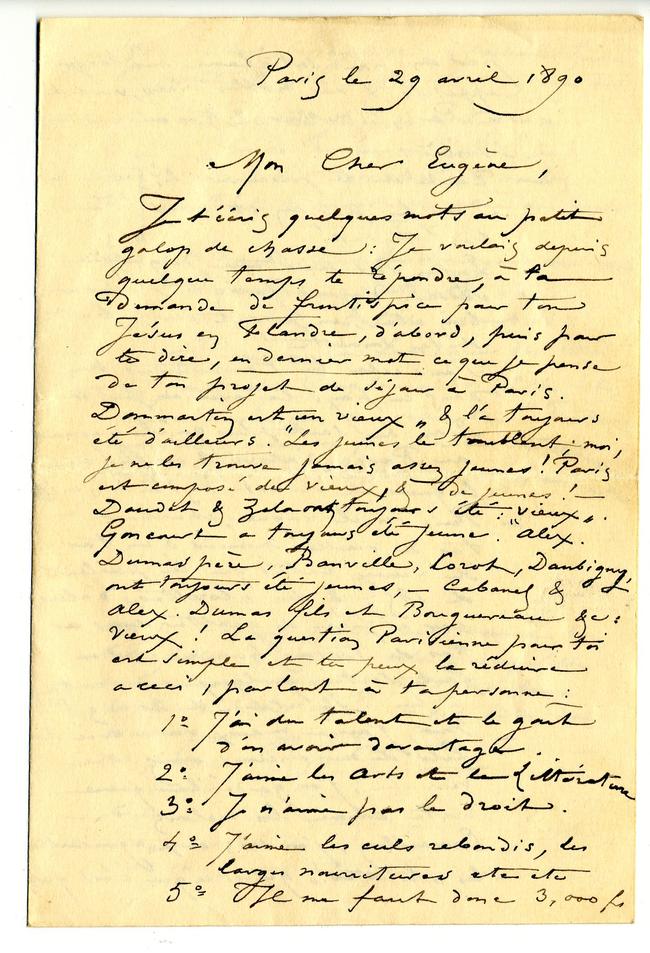 Paris le 29 avril 1890
Mon Cher Eugène,
Je t'écris quelques mots au petit
galop de chasse : Je voulais depuis
quelque temps te répondre, à ta
demande de frontispice pour ton
Jésus en Flandre, d'abord, puis pour
te dire, en dernier mot ce que je pense
de ton projet de séjour à Paris.
Dommartin est un vieux „ & l'a toujours
été d'ailleurs. "Les jeunes le troublent, moi,
je ne les trouve jamais assez jeunes ! Paris
est composé de vieux, & de jeunes ! —
Daudet & Zola ont toujours été : vieux „.
Goncourt a toujours été jeune. "Alex.
Dumas père, Banville, Corot, Daubigny,
ont toujours été jeunes, — Cabanel &
Alex. Dumas fils et Bouguereau &c :
vieux ! La question Parisienne pour toi
est simple et tu peux la réduire
a ceci, parlant à ta personne :
1º J'ai du talent et le goût
d'en avoir davantage.
2º J'aime les arts et la Littérature
3º Je n'aime pas le droit.
4º J'aime les culs rebondis, les
larges nourritures etc etc
5º Il me faut donc 3,000 fs